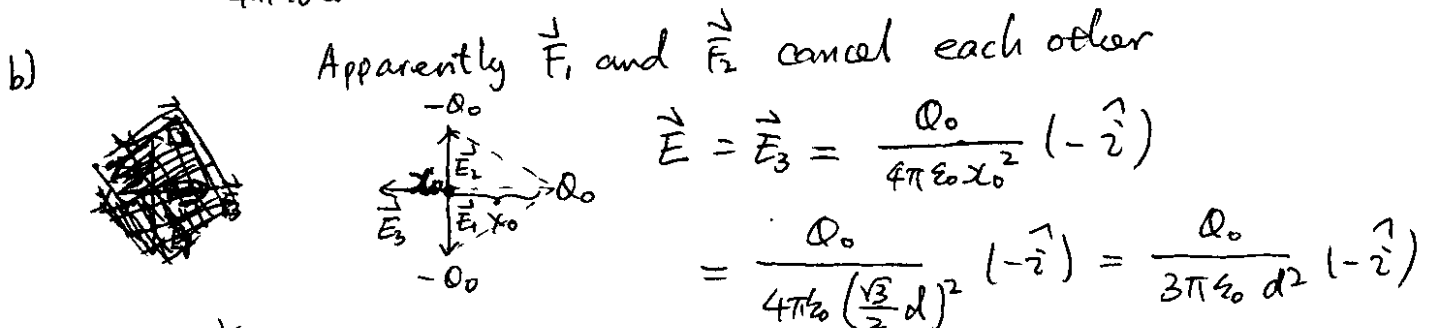 b)
Apparently F⃗₁ and F⃗₂ cancel each other
-Q₀
E⃗₂
x₀
Q₀
E⃗₃
E⃗₁ x₀
-Q₀
E⃗ = E⃗₃ = Q₀ / (4π ε₀ x₀²) (-î)
= Q₀ / (4πε₀ (√3/2 d)²) (-î) = Q₀ / (3π ε₀ d²) (-î)